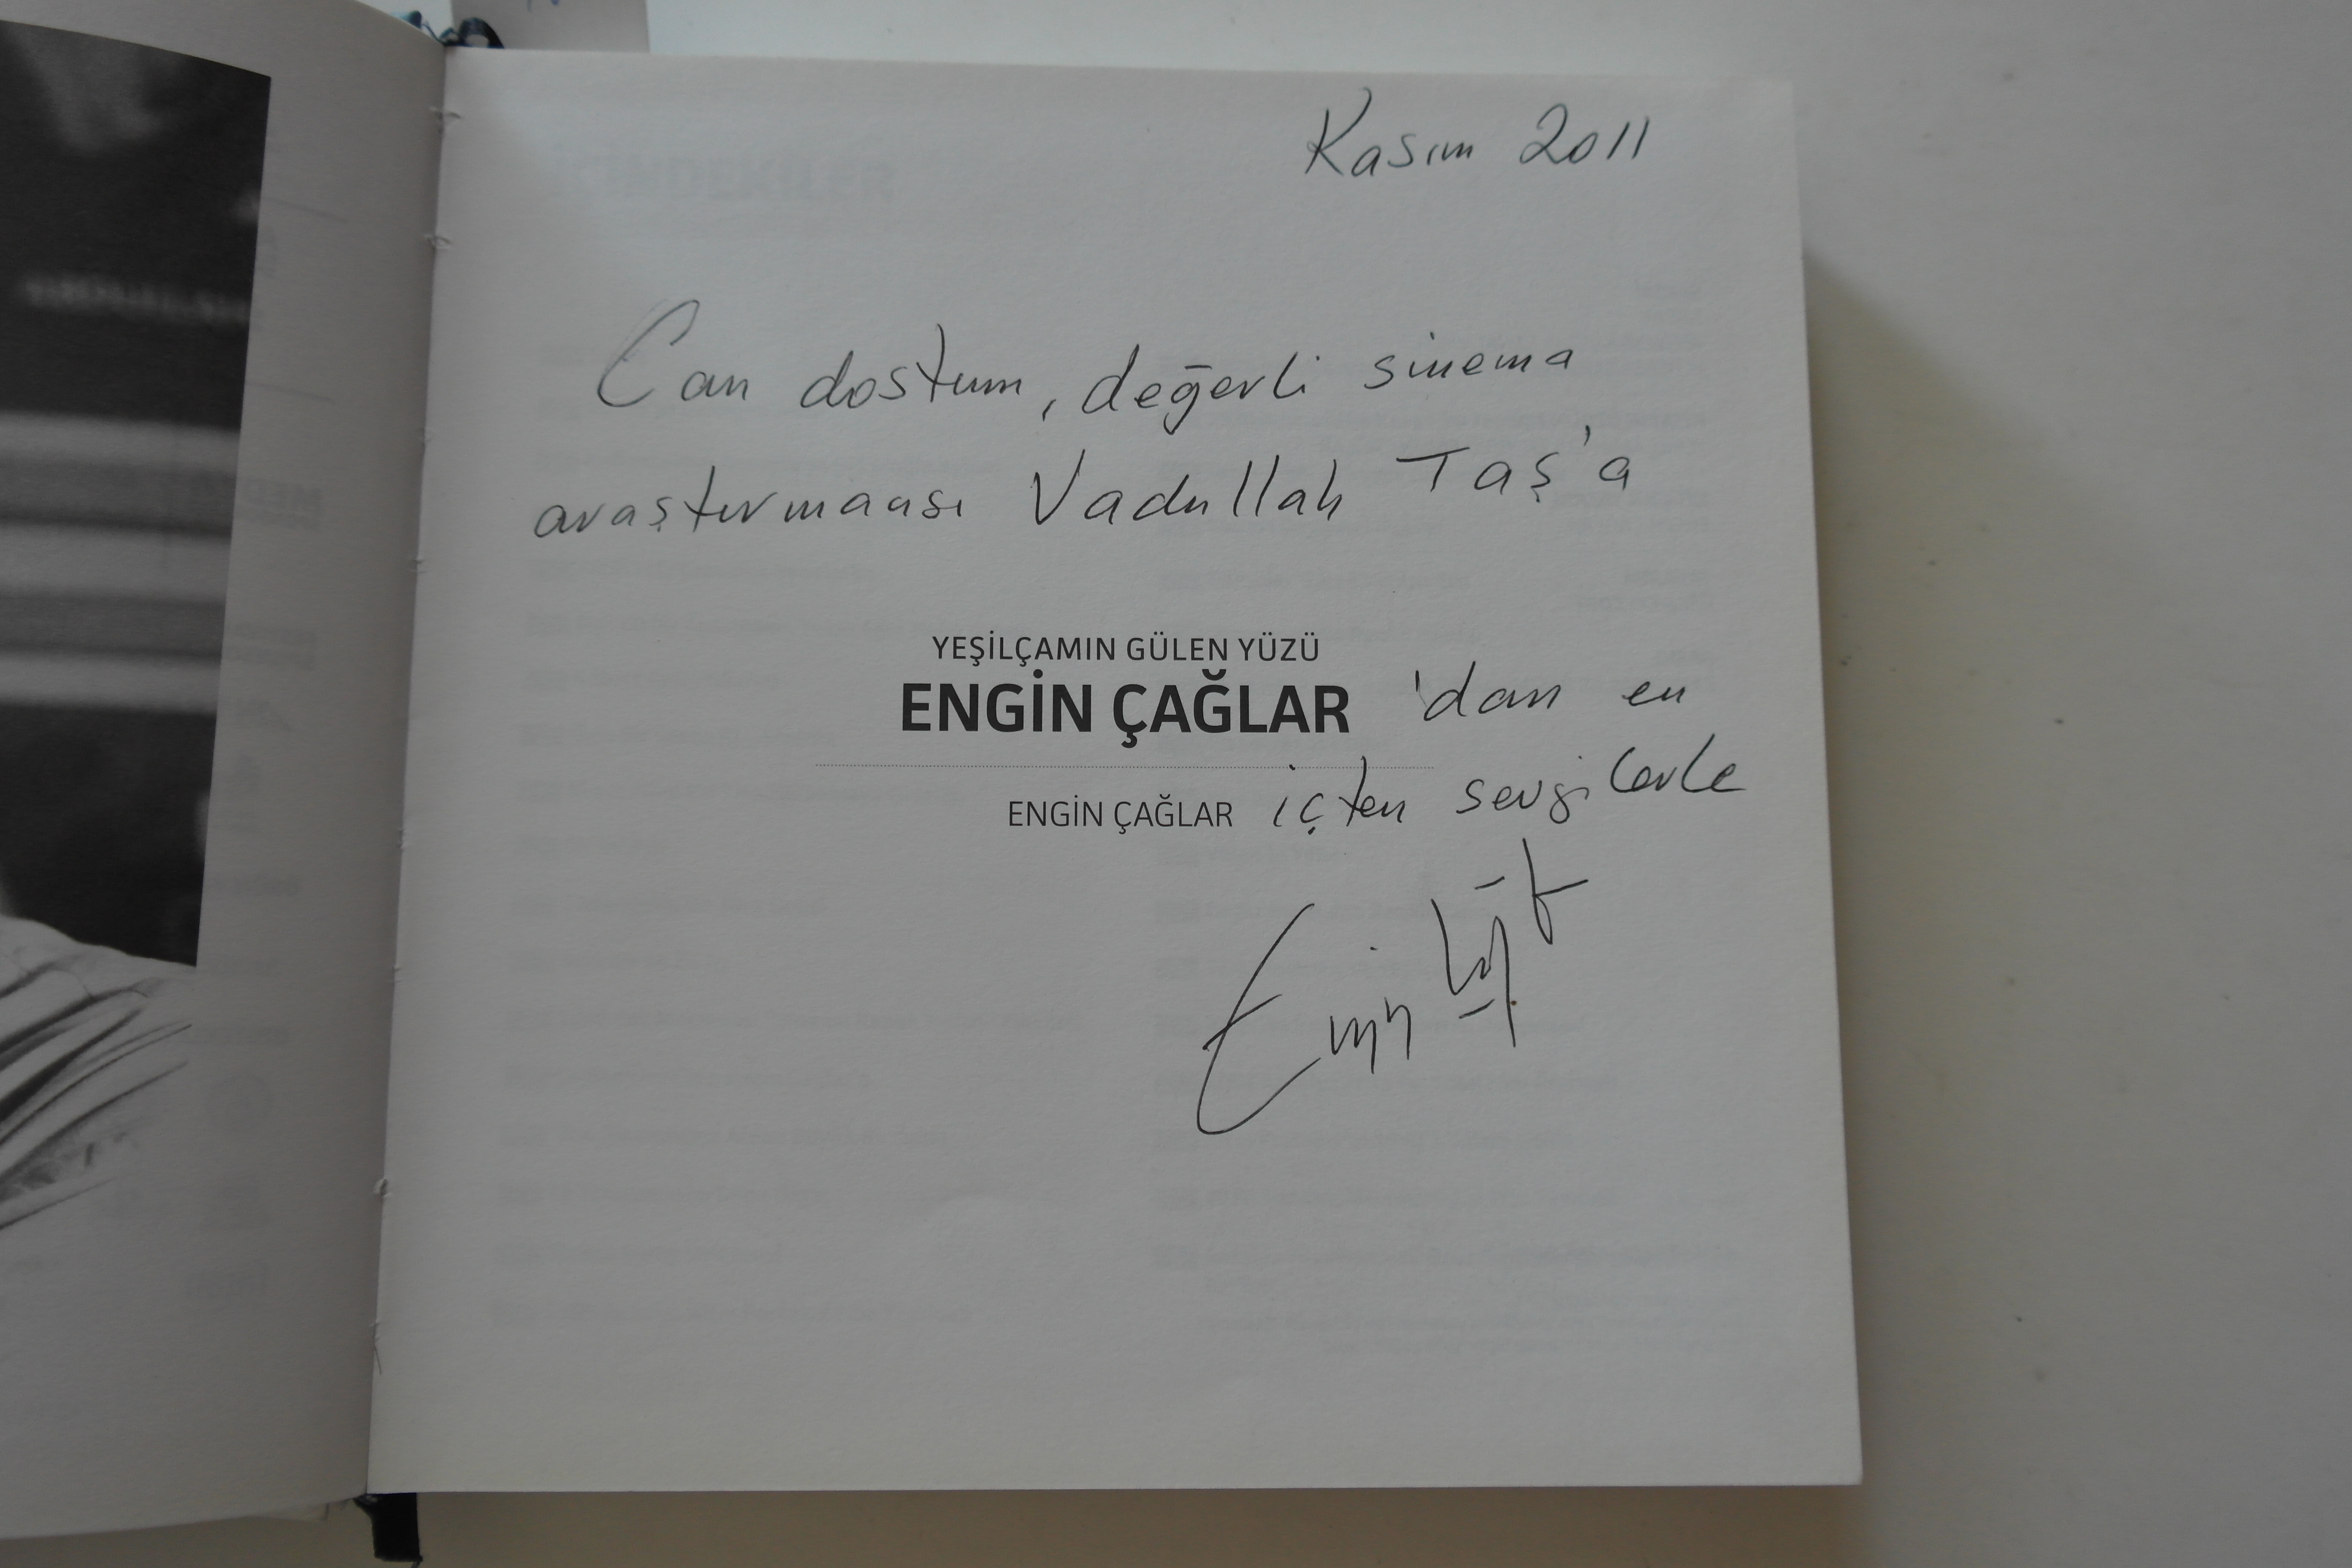 Kasım 2011
Can dostum, değerli sinema
araştırmacısı Vadullah Taş'a
YEŞİLÇAMIN GÜLEN YÜZÜ
ENGİN ÇAĞLAR 'dan en
ENGİN ÇAĞLAR içten sevgilerle